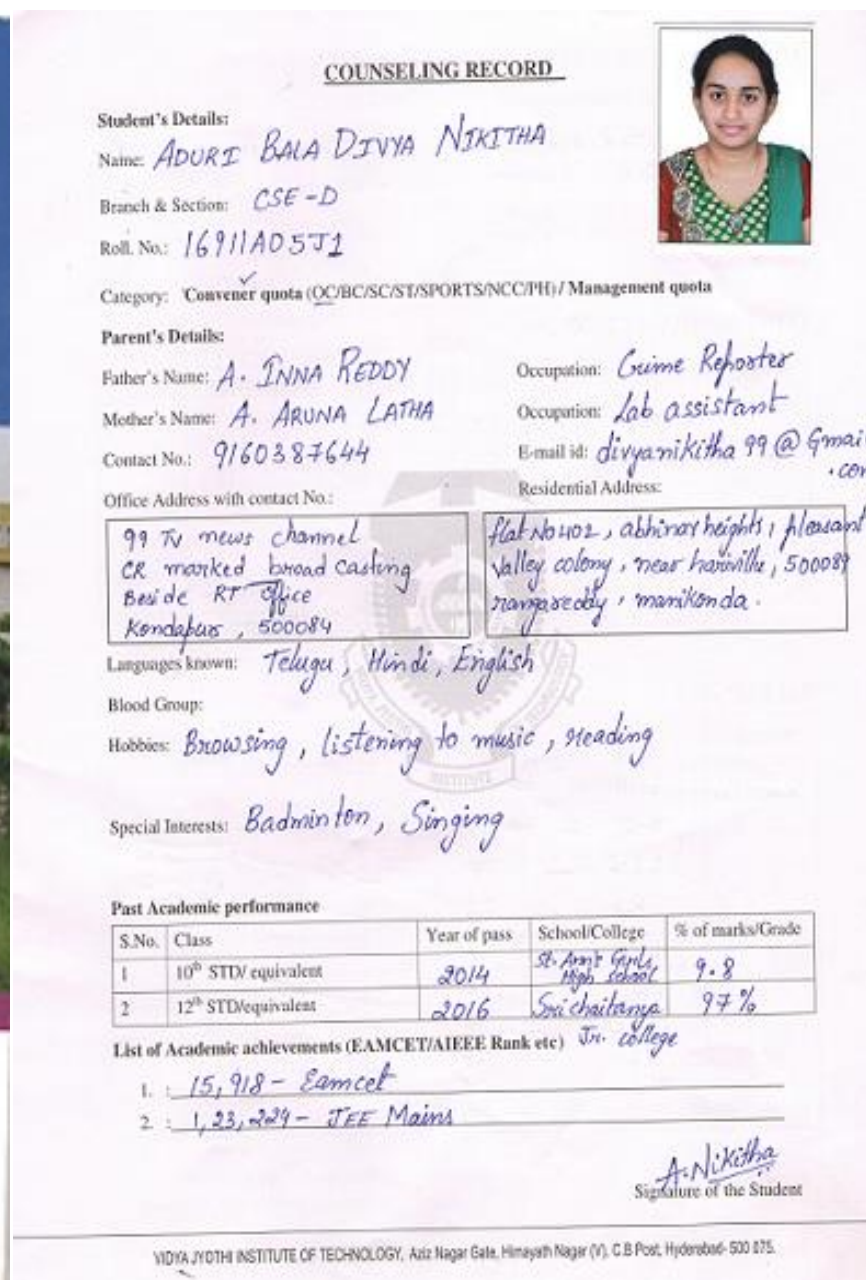 COUNSELING RECORD
Student's Details:
Name: ADURI BALA DIVYA NIKITHA
Branch & Section: CSE-D
Roll. No.: 16911A05J1
Category: Convener quota (OC/BC/SC/ST/SPORTS/NCC/PH) / Management quota
Parent's Details:
Father's Name: A. INNA REDDY Occupation: Crime Reporter
Mother's Name: A. ARUNA LATHA Occupation: Lab assistant
Contact No.: 9160387644 E-mail id: divyanikitha99@Gmail
.com
Office Address with contact No.: Residential Address:
99 TV news channel
CR marked broad casting
Beside RT office
Kondapur, 500084
flat No 402, abhinav heights, pleasant
valley colony, near hariville, 500089
rangareddy, manikonda.
Languages known: Telugu, Hindi, English
Blood Group:
Hobbies: Browsing, listening to music, reading
INSTITUTE
Special Interests: Badminton, Singing
Past Academic performance
S.No. Class Year of pass School/College % of marks/Grade
1 10th STD/ equivalent 2014 St. Ann's Girls High school 9.8
2 12th STD/equivalent 2016 Sri chaitanya 97%
List of Academic achievements (EAMCET/AIEEE Rank etc) Jr. college
1. : 15,918 - Eamcet
2 : 1,23,229 - JEE Mains
A. Nikitha
Signature of the Student
VIDYA JYOTHI INSTITUTE OF TECHNOLOGY, Aziz Nagar Gate, Himayath Nagar (V), C.B Post, Hyderabad- 500 075.